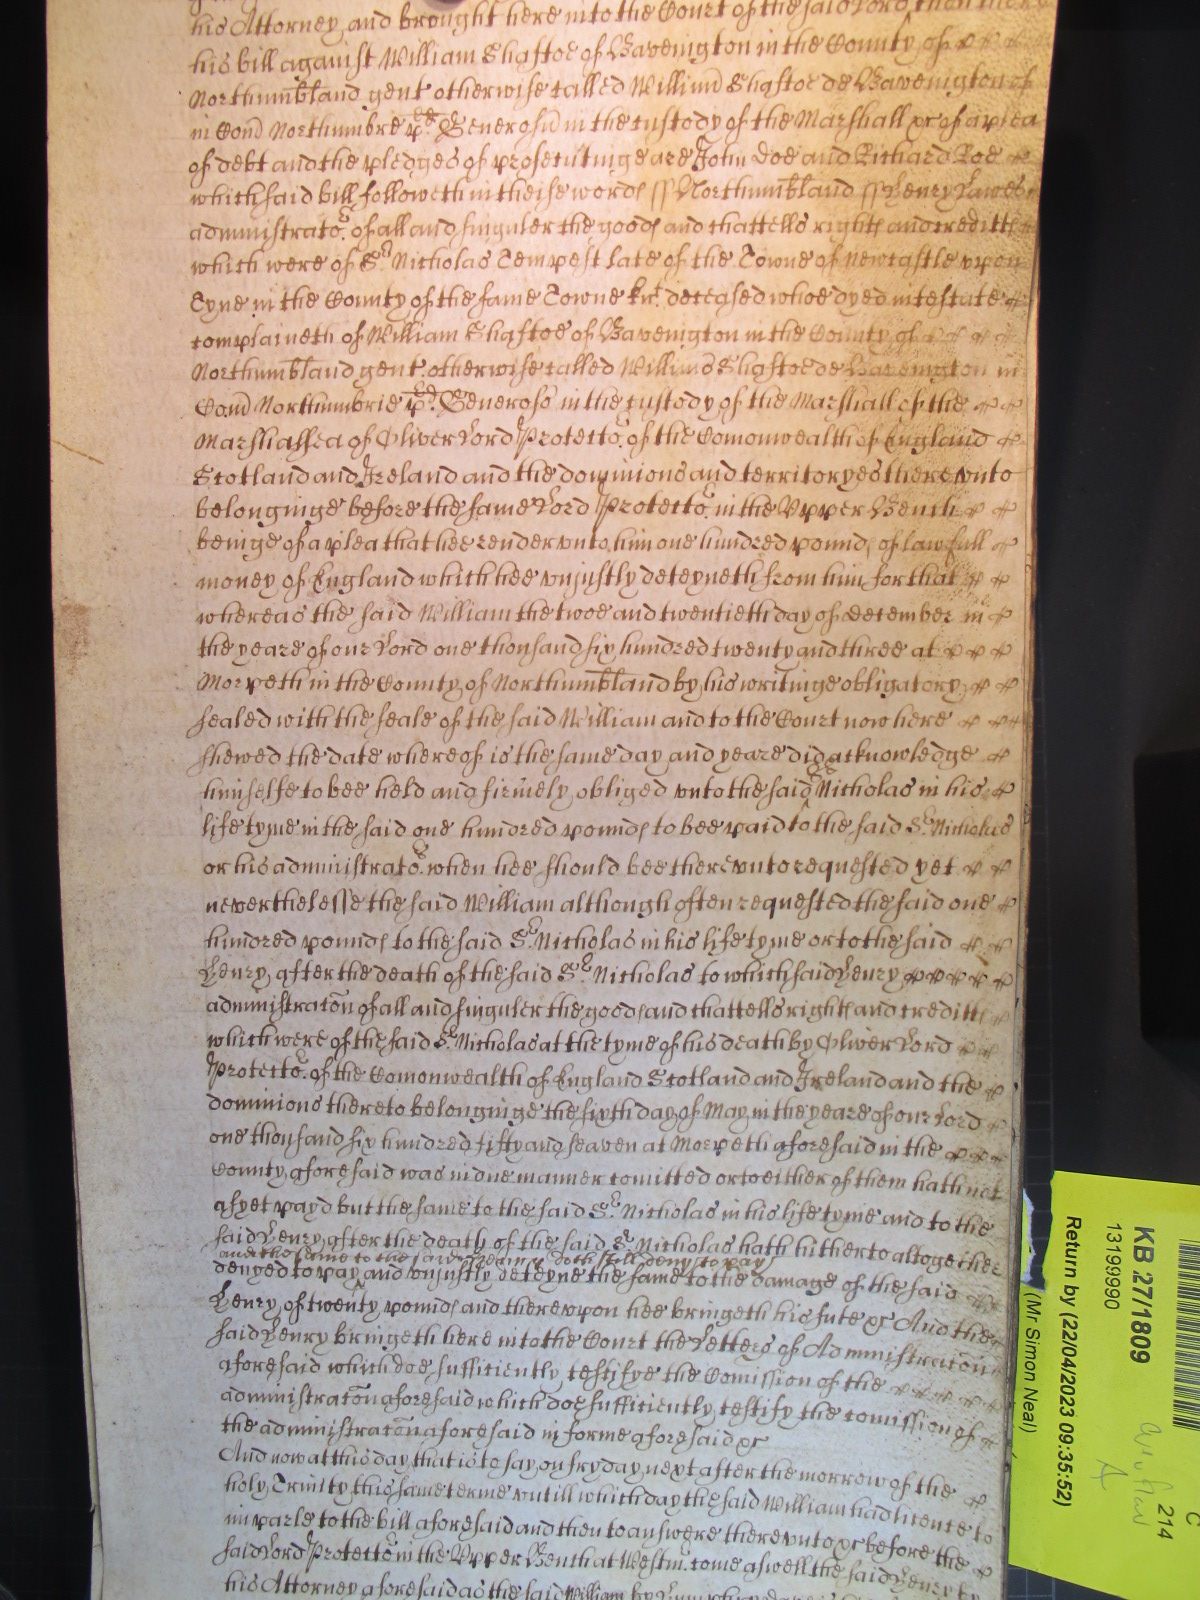 his Attorney and brought here into the Court of the said Lord then there
his bill against William Shaftoe of Bavenington in the County of
Northumbland gent otherwise called William Shaftoe de Bavenington
in Com Northumbre p̱d Generosu in the custody of the Marshall &c of a plea
of debt and the pledges of prosecutinge are John Doe and Richard Roe
which said bill followeth in theise words ss Northumbland ss Henry Lawes
administrator of all and singuler the goods and chattells rights and creditts
which were of Sr Nicholas Tempest late of the Towne of Newcastle vpon
Tyne in the County of the same Towne knt deceased whoe dyed intestate
complaineth of William Shaftoe of Bavenington in the County of
Northumbland gent otherwise called Willimu Shaftoe de Bavenington in
Com Northumbrie pd Generoso in the custody of the Marshall of the
Marshallsea of Oliver Lord Protector of the Comonwealth of England
Scotland and Ireland and the dominions and territoryes therevnto
belonginge before the same Lord Protector in the Vpper Bench
beinge of a plea that hee render vnto him one hundred pounds of lawfull
money of England which hee vnjustly deteyneth from him for that
whereas the said William the twoe and twentieth day of december in
the yeare of our Lord one thousand six hundred twenty and three at
Morpeth in the County of Northumbland by his writinge obligatory
sealed with the seale of the said William and to the Court now here
shewed the date whereof is the same day and yeare did acknowledge
himselfe to bee held and firmely obliged vnto the said Sr Nicholas in his
life tyme in the said one hundred pounds to bee paid to the said Sr Nicholas
or his administrator when hee should bee therevnto requested yet
neverthelesse the said William although often requested the said one
hundred pounds to the said Sr Nicholas in his life tyme or to the said
Henry after the death of the said Sr Nicholas to which said Henry
administracon of all and singuler the goods and chattells rights and creditts
which were of the said Sr Nicholas at the tyme of his death by Oliver Lord
Protector of the Comonwealth of England Scotland and Ireland and the
dominions thereto belonginge the sixth day of May in the yeare of our Lord
one thousand six hundred fifty and seaven at Morpeth aforesaid in the
County aforesaid was in due manner comitted or to either of them hath not
as yet payd but the same to the said Sr Nicholas in his life tyme and to the
said Henry after the death of the said Sr Nicholas hath hitherto altogether
and the same to the said Henry doth still deny to pay
denyed to pay and vnjustly deteyne the same to the damage of the said
Henry of twenty pounds and therevpon hee bringeth his sute &c And the
said Henry bringeth here into the Court the Letters of Administracon
aforesaid which doe sufficiently testifye the Comission of the
administracon aforesaid which doe sufficiently testify the comission of
the administracon aforesaid in forme aforesaid &c
And now at this day that is to say on fryday next after the morrow of the
holy Trinity this same terme vntill which day the said William had licence to
imparle to the bill aforesaid and then to answere therevnto &c before the
said Lord Protector in the Vpper Bench at Westm come aswell the said Henry by
his Attorney aforesaid as the said William by
KB 27/1809
13199990
Return by (22/04/2023 09:35:52)
(Mr Simon Neal)
C
214
A